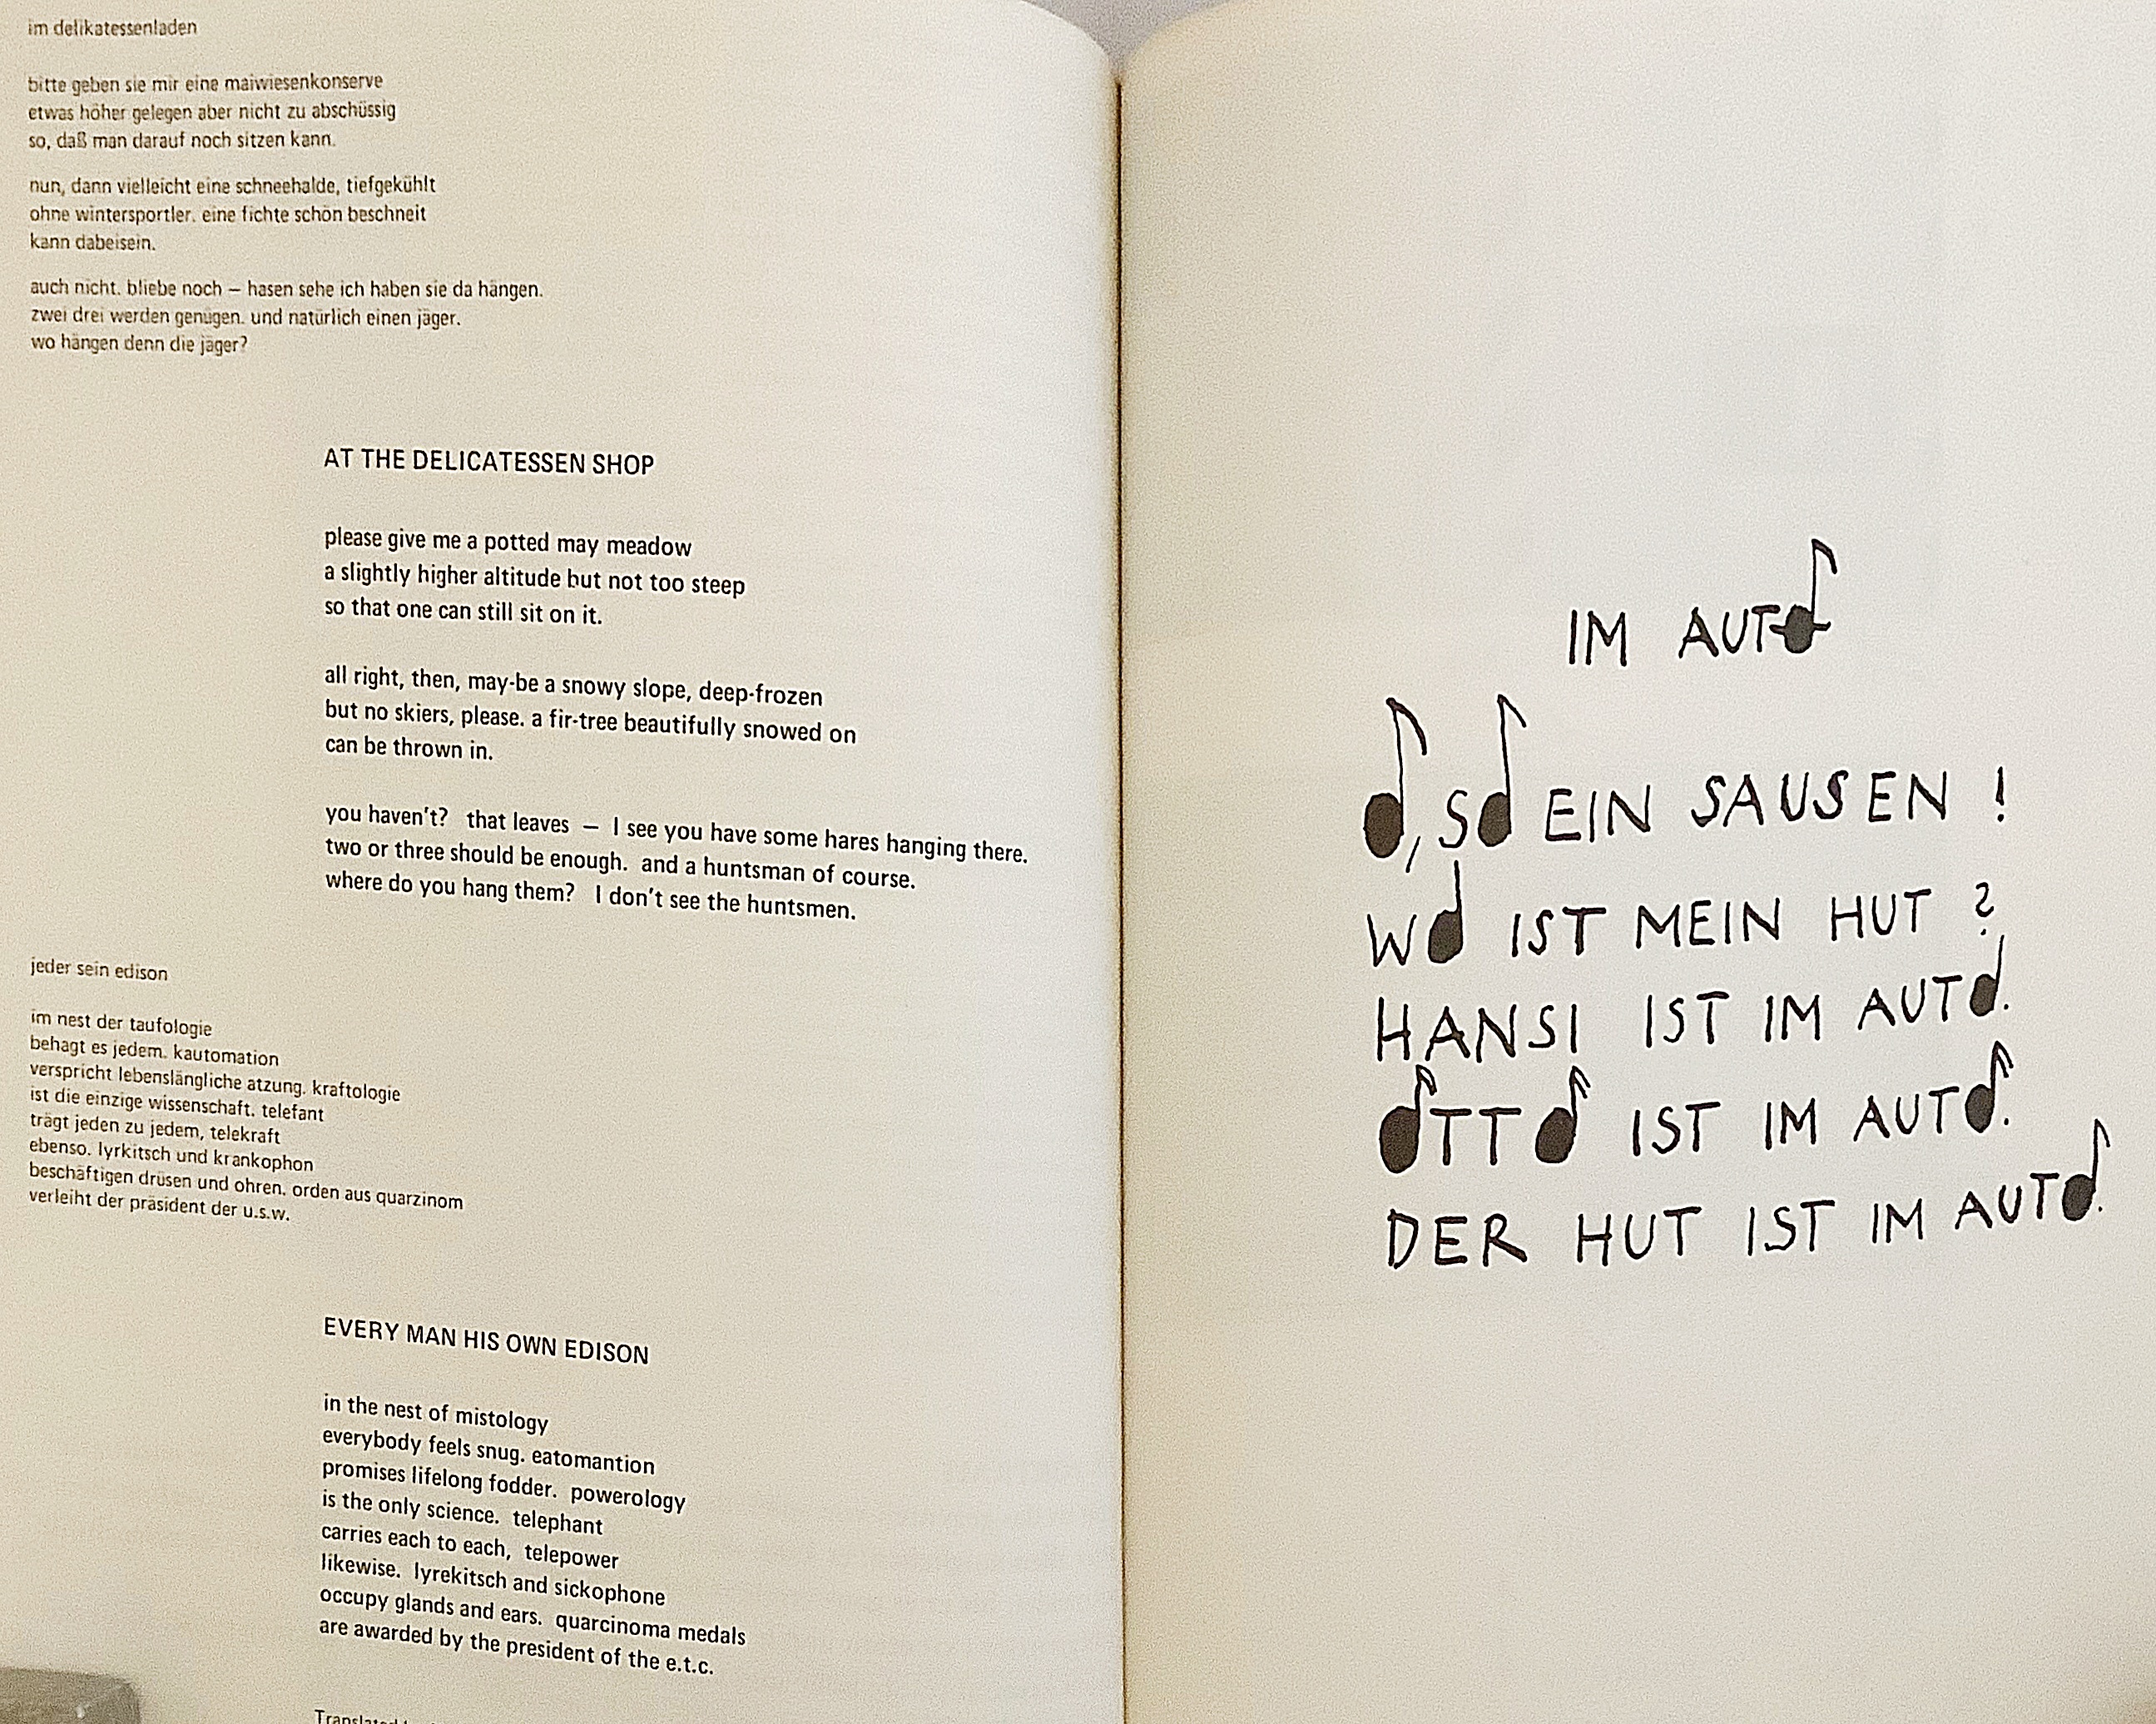 im delikatessenladen
bitte geben sie mir eine maiwiesenkonserve
etwas höher gelegen aber nicht zu abschüssig
so, daß man darauf noch sitzen kann.
nun, dann vielleicht eine schneehalde, tiefgekühlt
ohne wintersportler. eine fichte schön beschneit
kann dabeisein.
auch nicht. bliebe noch – hasen sehe ich haben sie da hängen.
zwei drei werden genügen. und natürlich einen jäger.
wo hängen denn die jäger?
AT THE DELICATESSEN SHOP
please give me a potted may meadow
a slightly higher altitude but not too steep
so that one can still sit on it.
all right, then, may-be a snowy slope, deep-frozen
but no skiers, please. a fir-tree beautifully snowed on
can be thrown in.
you haven't? that leaves – I see you have some hares hanging there.
two or three should be enough. and a huntsman of course.
where do you hang them? I don't see the huntsmen.
jeder sein edison
im nest der taufologie
behagt es jedem. kautomation
verspricht lebenslängliche atzung. kraftologie
ist die einzige wissenschaft. telefant
trägt jeden zu jedem, telekraft
ebenso. lyrkitsch und krankophon
beschäftigen drüsen und ohren. orden aus quarzinom
verleiht der präsident der u.s.w.
EVERY MAN HIS OWN EDISON
in the nest of mistology
everybody feels snug. eatomantion
promises lifelong fodder. powerology
is the only science. telephant
carries each to each, telepower
likewise. lyrekitsch and sickophone
occupy glands and ears. quarcinoma medals
are awarded by the president of the e.t.c.
IM AUTO
O, SO EIN SAUSEN !
WO IST MEIN HUT ?
HANSI IST IM AUTO.
OTTO IST IM AUTO.
DER HUT IST IM AUTO.